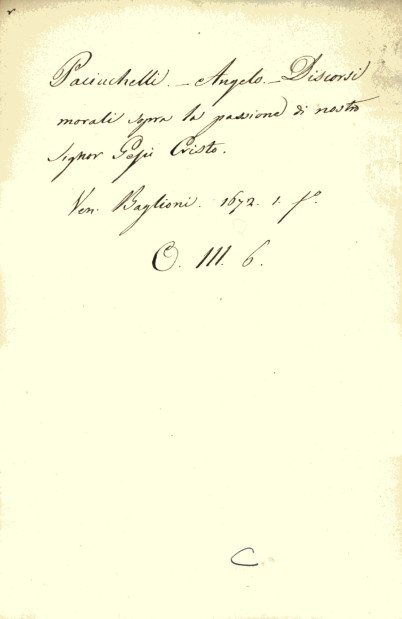 Paciuchelli. - Angelo. - Discorsi
morali sopra la passione di nostro
Signor Gesù Cristo.
Ven. Baglioni. 1672. 1. fº.
O. III. 6.
C